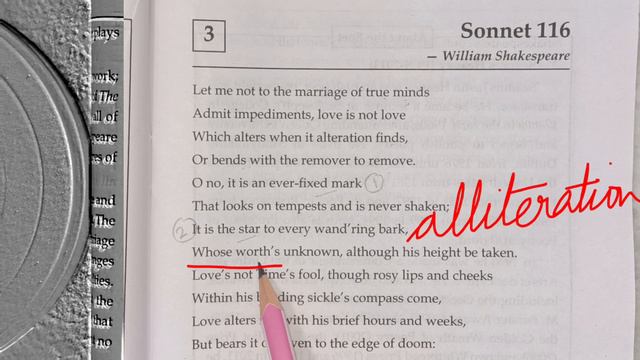 plays
work;
The
all of
eare
es of
and
The
iage
nges
ties.
the
that
no
3
Sonnet 116
— William Shakespeare
Let me not to the marriage of true minds
Admit impediments, love is not love
Which alters when it alteration finds,
Or bends with the remover to remove.
O no, it is an ever-fixed mark 1
That looks on tempests and is never shaken;
2 It is the star to every wand'ring bark,
alliteration
Whose worth's unknown, although his height be taken.
Love's not time's fool, though rosy lips and cheeks
Within his bending sickle's compass come,
Love alters with his brief hours and weeks,
But bears it even to the edge of doom: